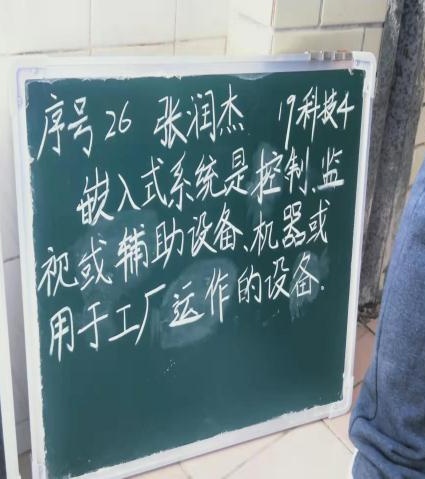 序号26 张润杰 19科技4
嵌入式系统是控制、监
视或辅助设备、机器或
用于工厂运作的设备.